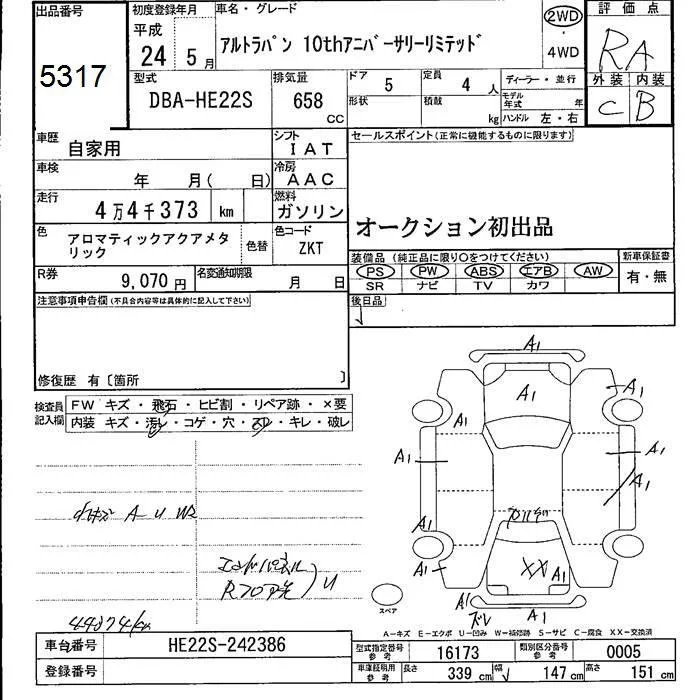 出品番号
5317
初度登録年月
平成
24 5月
車名・グレード
アルトラパン 10thアニバーサリーリミテッド
2WD
・
4WD
評価点
RA
外装 内装
C B
型式
DBA-HE22S
排気量
658
CC
ドア
5
定員
4 人
形状
積載
kg
ディーラー・並行
モデル年式 年
ハンドル 左・右
車歴
自家用
シフト
IAT
車検
年 月( 日)
冷房
AAC
走行
4万4千373 km
燃料
ガソリン
色
アロマティックアクアメタリック
色替
色コード
ZKT
R券
9,070円
名変通知期限
月 日
セールスポイント(正常に機能するものに限ります)
オークション初出品
装備品 (純正品に限り○をつけてください)
PS PW ABS エアB AW
SR ナビ TV カワ
新車保証書
有・無
後日品
注意事項申告欄(不具合内容等は具体的に記入して下さい)
修復歴 有〔箇所 〕
検査員記入欄
FW キズ・飛石・ヒビ割・リペア跡・×要
内装 キズ・汚レ・コゲ・穴・スレ・キレ・破レ
A U W2
U
A1
A1
A1
A1
A1
A1
A1
A1
A1
A1
XX
A1
A1
A1
スペア
A-キズ E-エクボ U-凹み W-補修跡 S-サビ C-腐食 XX-交換済
車台番号
HE22S-242386
登録番号
型式指定番号 参考
16173
類別区分番号 参考
0005
車庫証明用 参考
長さ 339 cm
幅 147 cm
高さ 151 cm